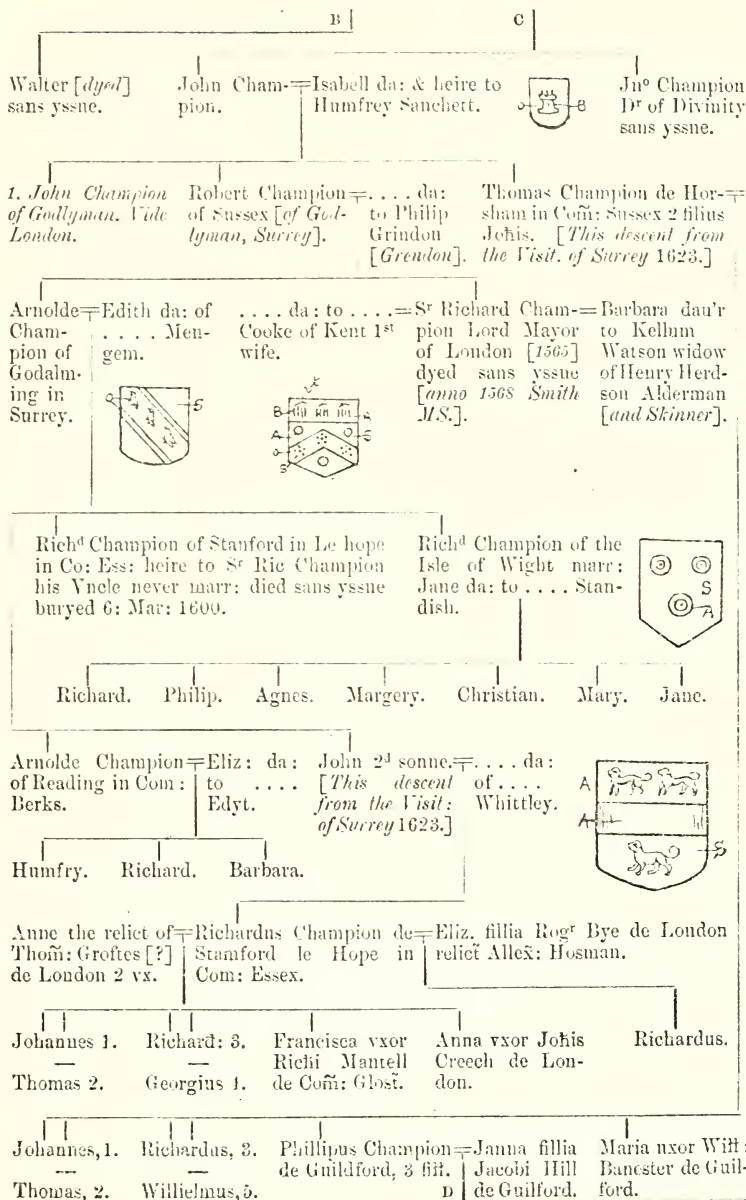 B C
Walter [dyed]
sans yssne.
John Cham-
pion.
Isabell da: & heire to
Humfrey Sanchett.
O B
Jn° Champion
Dʳ of Divinity
sans yssne.
1. John Champion
of Godlyman. Vide
London.
Robert Champion
of Sussex [of God-
lyman, Surrey].
. . . . da:
to Philip
Grindon
[Grendon].
Thomas Champion de Hor-
sham in Com̃: Sussex 2 filius
Joħis. [This descent from
the Visit. of Surrey 1623.]
Arnolde
Cham-
pion of
Godalm-
ing in
Surrey.
Edith da: of
. . . . Men-
gem.
. . . . da: to . . . .
Cooke of Kent 1ˢᵗ
wife.
Sʳ Richard Cham-
pion Lord Mayor
of London [1565]
dyed sans yssue
[anno 1568 Smith
MS.].
Barbara dau'r
to Kellum
Watson widow
of Henry Herd-
son Alderman
[and Skinner].
O S
B A
A S
O
S
Richᵈ Champion of Stanford in Le hope
in Co: Ess: heire to Sʳ Ric Champion
his Vncle never marr: died sans yssue
buryed 6: Mar: 1600.
Richᵈ Champion of the
Isle of Wight marr:
Jane da: to . . . . Stan-
dish.
S
A
Richard. Philip. Agnes. Margery. Christian. Mary. Jane.
Arnolde Champion
of Reading in Com:
Berks.
Eliz: da:
to . . . .
Edyt.
John 2ᵈ sonne.
[This descent
from the Visit:
of Surrey 1623.]
. . . . da:
of . . . .
Whittley.
A
A
S
Humfry. Richard. Barbara.
Anne the relict of
Thom̃: Groftes [?]
de London 2 vx.
Richardus Champion de
Stamford le Hope in
Com: Essex.
Eliz. fillia Rogʳ Bye de London
relict̃ Allex̃: Hosman.
Johannes 1.
—
Thomas 2.
Richard: 3.
—
Georgius 4.
Francisca vxor
Richi Mantell
de Com̃: Glost̃.
Anna vxor Joħis
Creech de Lon-
don.
Richardus.
Johannes, 1.
—
Thomas, 2.
Richardus, 3.
—
Willielmus, 5.
Phillipus Champion
de Guildford, 3 fil̃.
D
Janna fillia
Jacobi Hill
de Guilford.
Maria uxor Wiłł:
Banester de Guil-
ford.